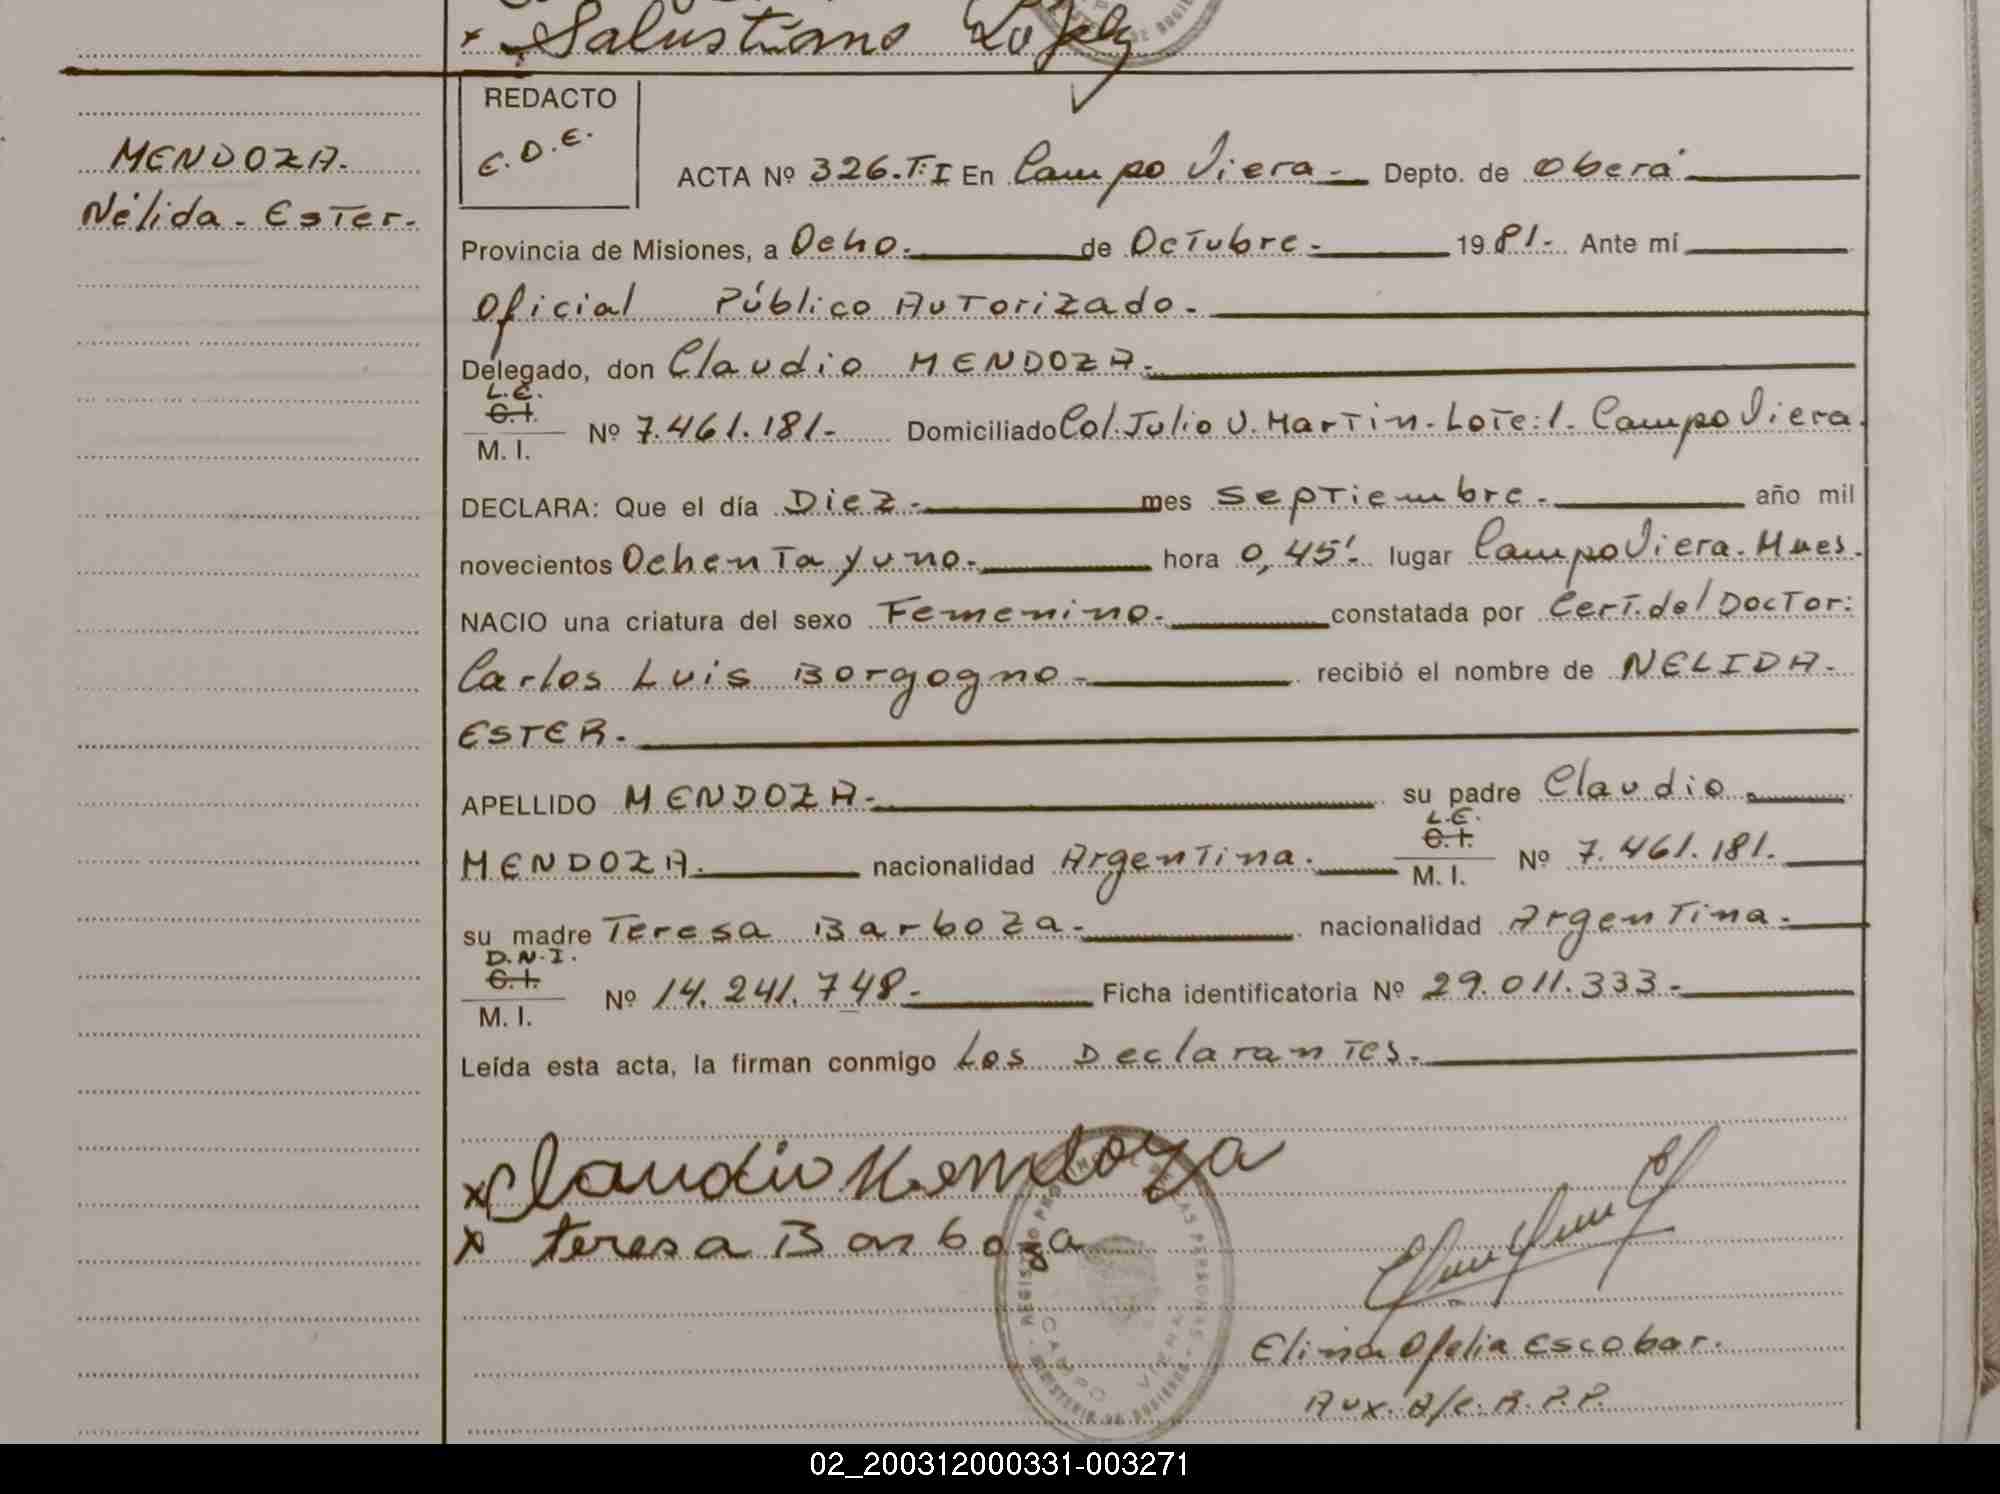 x Salustiano
REDACTO
E.O.E.
MENDOZA.
Nélida. Ester.
ACTA Nº 326.T:I En Campo Viera. Depto. de Oberá
Provincia de Misiones, a Ocho. de Octubre. 1981. Ante mí
Oficial Público Autorizado.
Delegado, don Claudio MENDOZA.
L.E.
C.I.
M. I.
Nº 7.461.181. Domiciliado Col. Julio U. Martin. Lote:1. Campo Viera.
DECLARA: Que el día Diez. mes Septiembre. año mil
novecientos Ochenta y uno. hora 0,45'. lugar Campo Viera. Mnes.
NACIO una criatura del sexo Femenino. constatada por Cert. del Doctor:
Carlos Luis Borgogno. recibió el nombre de NELIDA.
ESTER.
APELLIDO MENDOZA. su padre Claudio.
L.E.
C.I.
MENDOZA. nacionalidad Argentina. M. I. Nº 7.461.181.
su madre Teresa Barboza. nacionalidad Argentina.
D.N.I.
C.I.
M. I.
Nº 14.241.748. Ficha identificatoria Nº 29.011.333.
Leída esta acta, la firman conmigo Los Declarantes.
x Claudio Mendoza
x teresa Barboza
REGISTRO PROVINCIAL DE LAS PERSONAS
CAMPO VIERA
MINISTERIO DE GOBIERNO
Elina Ofelia Escobar.
Aux. A/c. R.P.P.
02_200312000331-003271